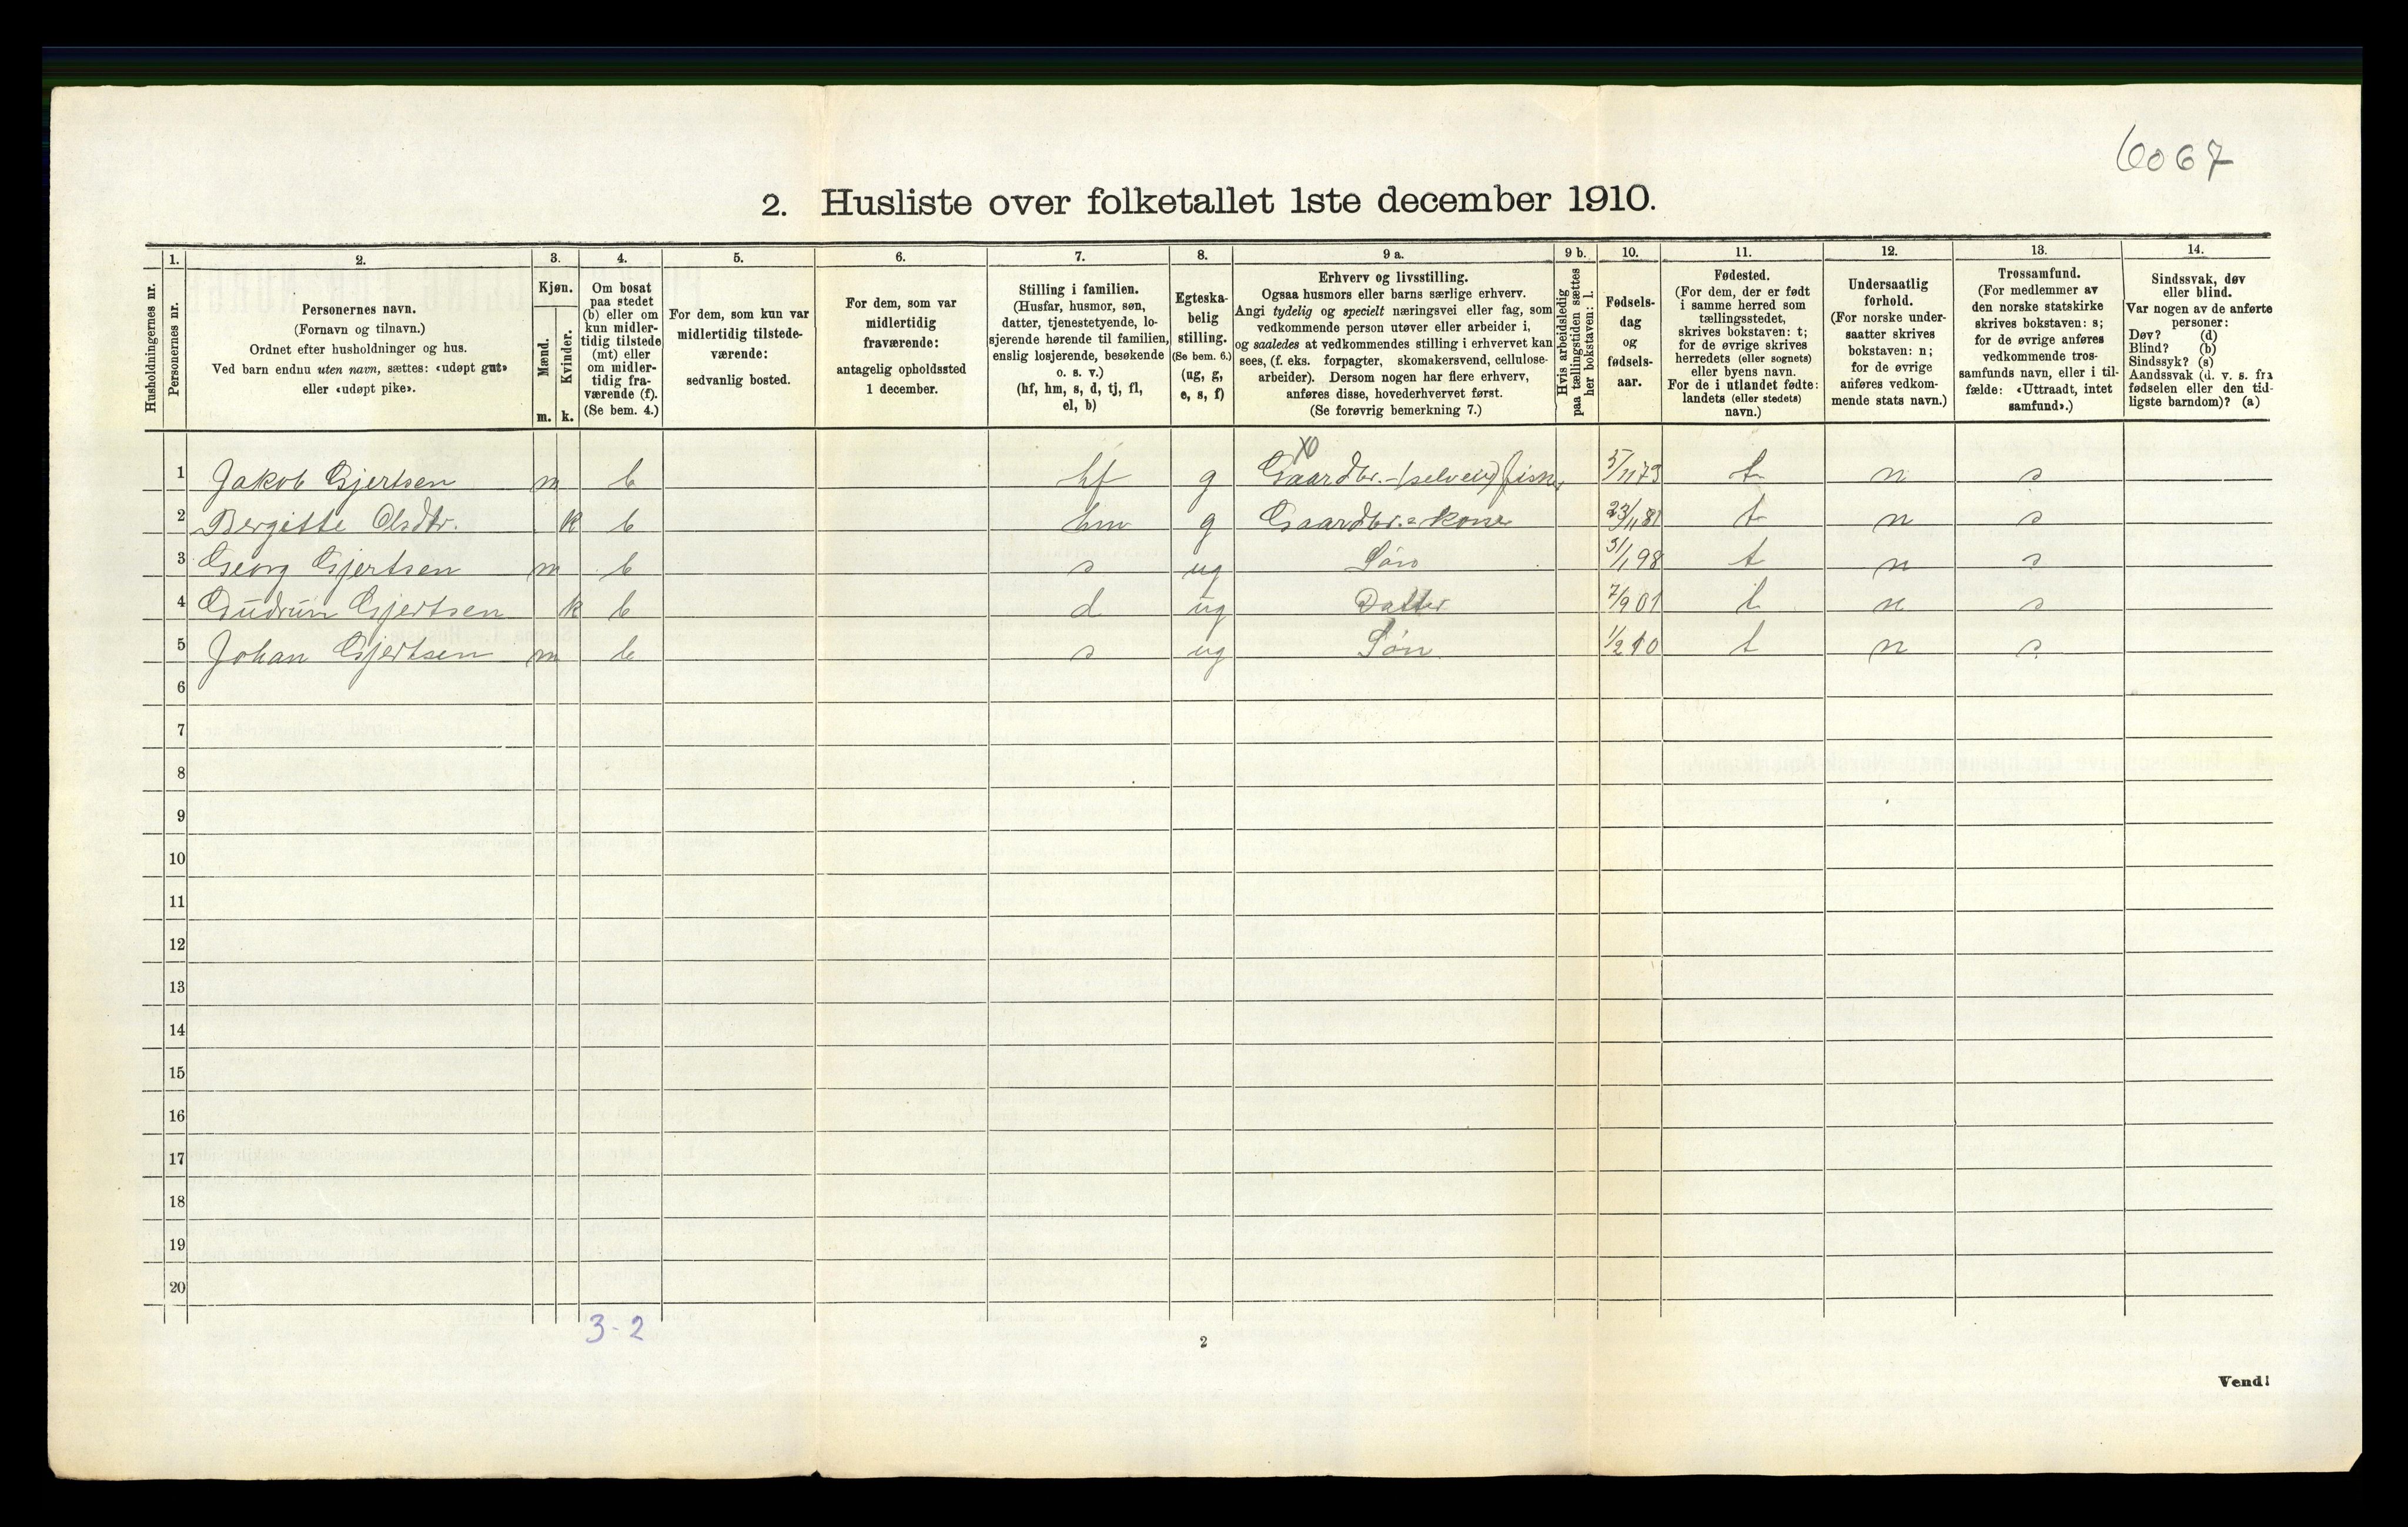 6067
2. Husliste over folketallet 1ste december 1910.
Husholdningernes nr.
1.
Personernes nr.
2.
Personernes navn.
(Fornavn og tilnavn.)
Ordnet efter husholdninger og hus.
Ved barn endnu uten navn, sættes: «udøpt gut»
eller «udøpt pike».
3.
Kjøn.
Mænd.
m.
Kvinder.
k.
4.
Om bosat
paa stedet
(b) eller om
kun midler-
tidig tilstede
(mt) eller
om midler-
tidig fra-
værende (f).
(Se bem. 4.)
5.
For dem, som kun var
midlertidig tilstede-
værende:
sedvanlig bosted.
6.
For dem, som var
midlertidig
fraværende:
antagelig opholdssted
1 december.
7.
Stilling i familien.
(Husfar, husmor, søn,
datter, tjenestetyende, lo-
sjerende hørende til familien,
enslig losjerende, besøkende
o. s. v.)
(hf, hm, s, d, tj, fl,
el, b)
8.
Egteska-
belig
stilling.
(Se bem. 6.)
(ug, g,
e, s, f)
9 a.
Erhverv og livsstilling.
Ogsaa husmors eller barns særlige erhverv.
Angi tydelig og specielt næringsvei eller fag, som
vedkommende person utøver eller arbeider i,
og saaledes at vedkommendes stilling i erhvervet kan
sees, (f. eks. forpagter, skomakersvend, cellulose-
arbeider). Dersom nogen har flere erhverv,
anføres disse, hovederhvervet først.
(Se forøvrig bemerkning 7.)
9 b.
Hvis arbeidsledig
paa tællingstiden sættes
her bokstaven: l.
10.
Fødsels-
dag
og
fødsels-
aar.
11.
Fødested.
(For dem, der er født
i samme herred som
tællingsstedet,
skrives bokstaven: t;
for de øvrige skrives
herredets (eller sognets)
eller byens navn.
For de i utlandet fødte:
landets (eller stedets)
navn.)
12.
Undersaatlig
forhold.
(For norske under-
saatter skrives
bokstaven: n;
for de øvrige
anføres vedkom-
mende stats navn.)
13.
Trossamfund.
(For medlemmer av
den norske statskirke
skrives bokstaven: s;
for de øvrige anføres
vedkommende tros-
samfunds navn, eller i til-
fælde: «Uttraadt, intet
samfund».)
14.
Sindssvak, døv
eller blind.
Var nogen av de anførte
personer:
Døv? (d)
Blind? (b)
Sindssyk? (s)
Aandssvak (d. v. s. fra
fødselen eller den tid-
ligste barndom)? (a)
1 Jakob Gjertsen m b hf g Gaardbr.-(selveier) fisk. 5/11 73 t n s
2 Bergitte Olsdtr. k b hm g Gaardbr.=kone 23/11 81 t n s
3 Georg Gjertsen m b s ug Søn 31/1 98 t n s
4 Gudrun Gjertsen k b d ug Datter 7/9 01 t n s
5 Johan Gjertsen m b s ug Søn 1/2 10 t n s
6
7
8
9
10
11
12
13
14
15
16
17
18
19
20
3-2
2
Vend!